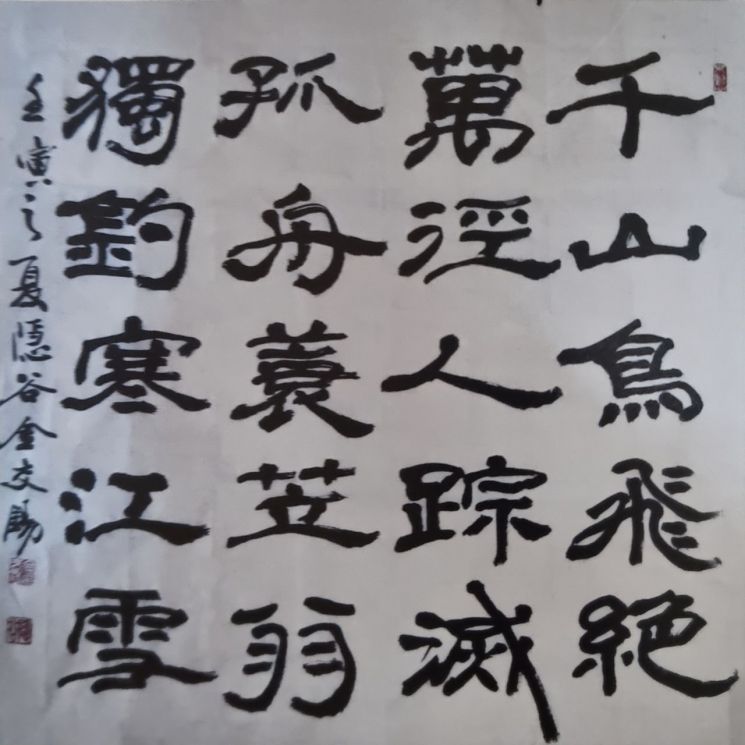 千山鳥飛絶
萬徑人踪滅
孤舟蓑笠翁
獨釣寒江雪
壬寅之夏隱谷金